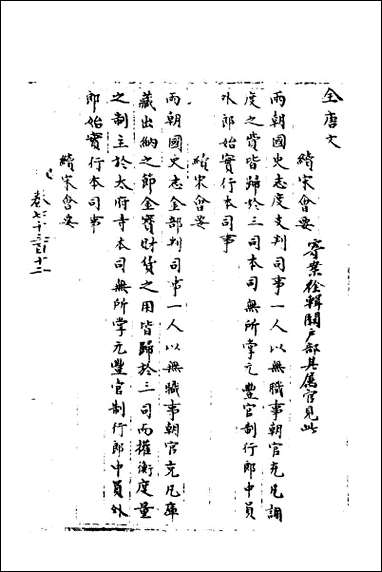 全唐文
續宋會要
寄案徐輯闕戶部其屬官見此
兩朝國史志度支判司事一人以無職事朝官充凡調
度之費皆歸於三司本司無所掌元豐官制行郎中員
外郎始實行本司事
續宋會要
兩朝國史志金部判司事一人以無職事朝官充凡庫
藏出納之節金寶財貨之用皆歸於三司而權衡度量
之制主於太府寺本司無所掌元豐官制行郎中員外
郎始實行本司事
續宋會要
卷七千三百十二